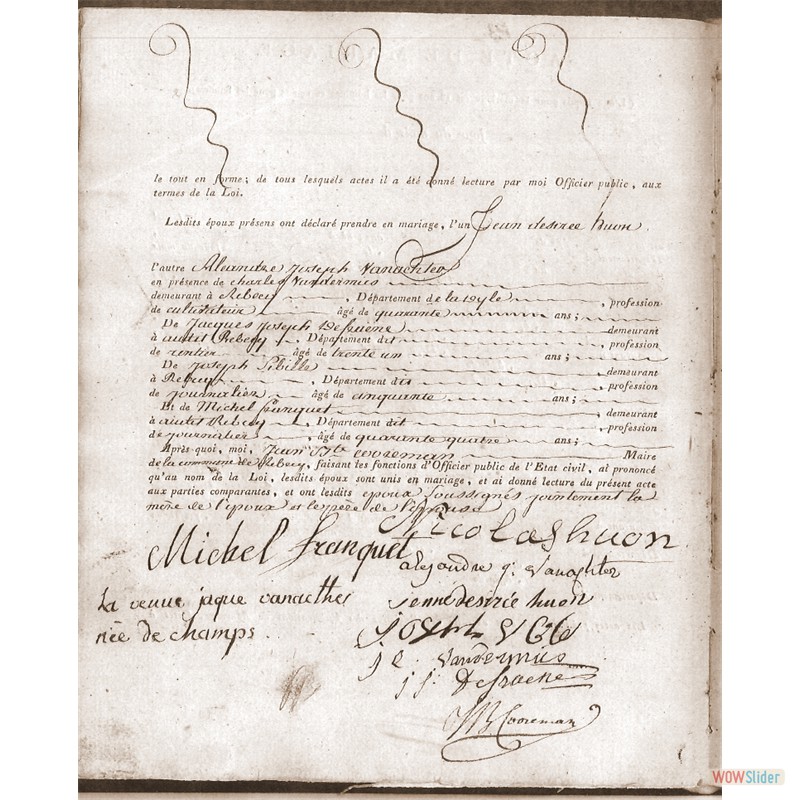 le tout en forme; de tous lesquels actes il a été donné lecture par moi Officier public, aux
termes de la Loi.
Lesdits époux présens ont déclaré prendre en mariage, l'un Jean desiree huon
l'autre Alexandre Joseph Vanachter
en présence de charles Vandermies
demeurant à Rebecq , Département de la Dyle , profession
de cultivateur âgé de quarante ans;
De Jacques Joseph demeurant
à audit Rebecq , Département dit profession
de rentier âgé de trente un ans;
De Joseph Sibille demeurant
à Rebecq , Département dit profession
de journalier âgé de cinquante ans;
Et de Michel franquet demeurant
à audit Rebecq , Département dit , profession
de journalier , âgé de quarante quatre ans;
Après quoi, moi, Jean Bte cooreman Maire
de la commune de Rebecq, faisant les fonctions d'Officier public de l'Etat civil, ai prononcé
qu'au nom de la Loi, lesdits époux sont unis en mariage, et ai donné lecture du présent acte
aux parties comparantes, et ont lesdits epoux soussignés jointement la
mere de l'epoux et le pere de l'epouse
Nicolas huon
Michel franquet
alejandre j. Vanachter
La veuve jaque vanachter
jenne desirée huon
née de champs.
Vandermies
JB Cooreman
WOWSlider